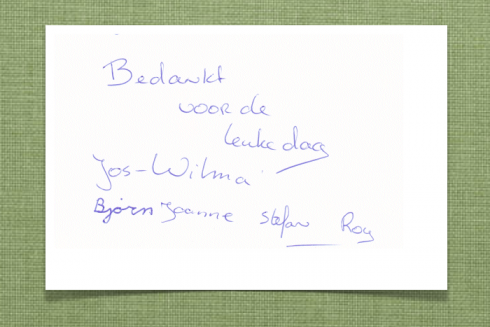 Bedankt
voor de
leuke dag
Jos-Wilma
Bjørn Joanne Stefan Roy